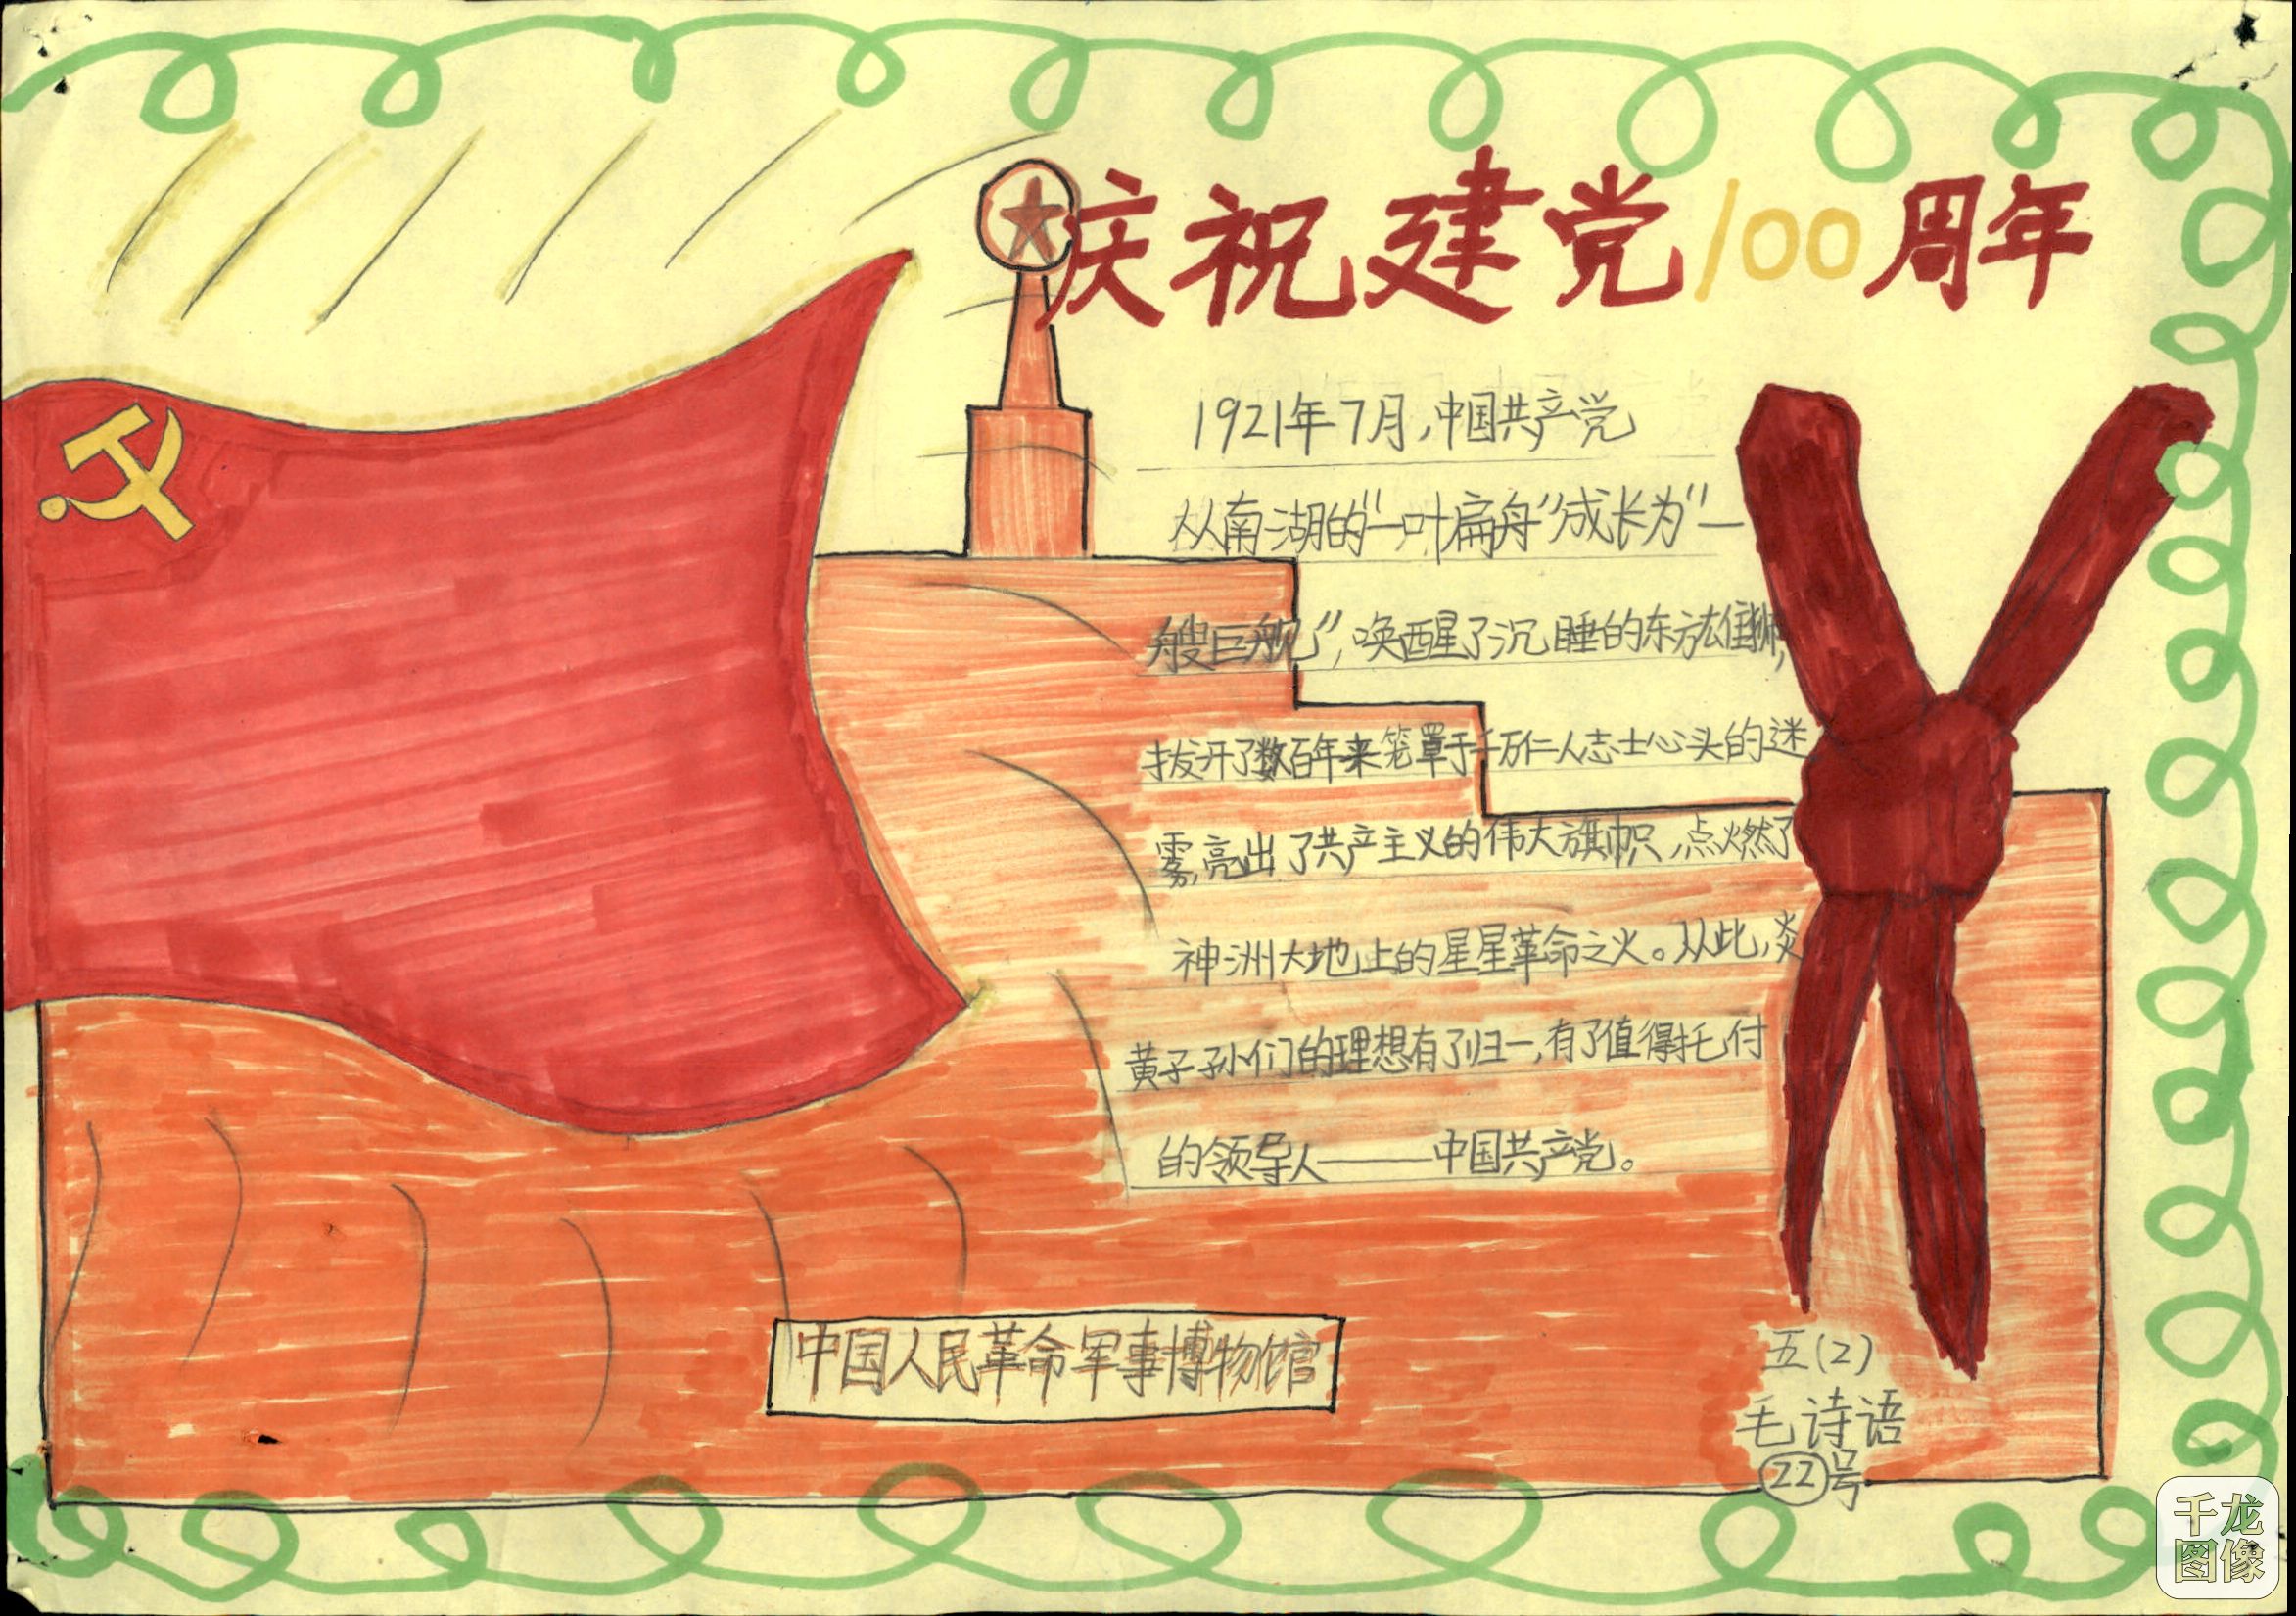 庆祝建党100周年
1921年7月,中国共产党
从南湖的"一叶扁舟"成长为"一
艘巨舰",唤醒了沉睡的东方雄狮,
拔开了数百年来笼罩于千万仁人志士心头的迷
雾,亮出了共产主义的伟大旗帜,点燃了
神洲大地上的星星革命之火。从此,炎
黄子孙们的理想有了归一,有了值得托付
的领导人——中国共产党。
中国人民革命军事博物馆
五(2)
毛诗语
22号
千龙
图像